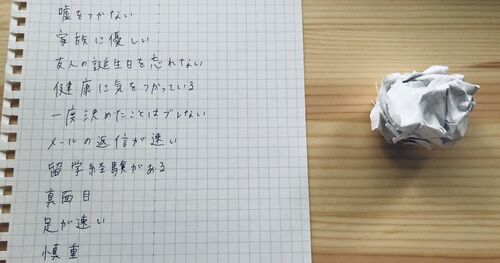 嘘をつかない
家族に優しい
友人の誕生日を忘れない
健康に気をつかっている
一度決めたことはブレない
メールの返信が速い
留学経験がある
真面目
足が速い
慎重